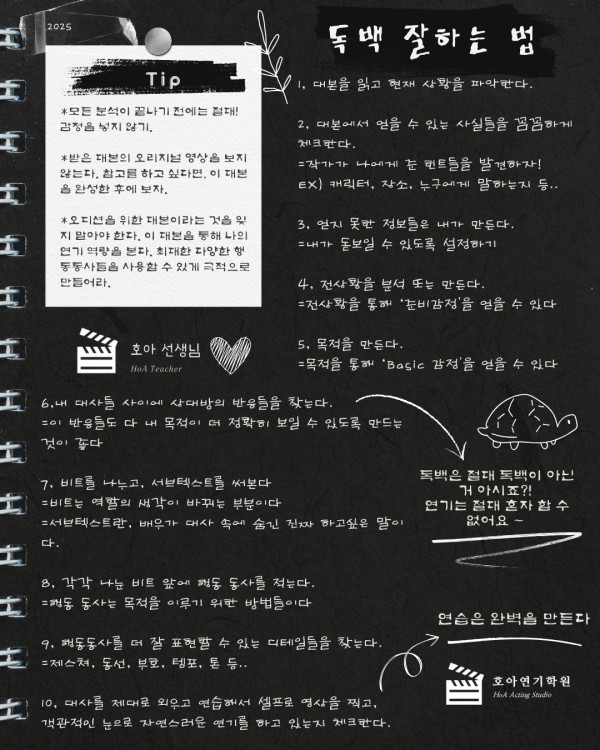 2025
독백 잘하는 법
Tip
*모든 분석이 끝나기 전에는 절대!
감정을 넣지 않기.
*받은 대본의 오리지널 영상을 보지
않는다. 참고를 하고 싶다면, 이 대본
을 완성한 후에 보자.
*오디션을 위한 대본이라는 것을 잊
지 말아야 한다. 이 대본을 통해 나의
연기 역량을 본다. 최대한 다양한 행
동동사들을 사용할 수 있게 극적으로
만들어라.
호아 선생님
HoA Teacher
1. 대본을 읽고 현재 상황을 파악한다.
2. 대본에서 얻을 수 있는 사실들을 꼼꼼하게
체크한다.
=작가가 나에게 준 힌트들을 발견하자!
EX) 캐릭터, 장소, 누구에게 말하는지 등..
3. 얻지 못한 정보들은 내가 만든다.
=내가 돋보일 수 있도록 설정하기
4. 전상황을 분석 또는 만든다.
=전상황을 통해 '준비감정'을 얻을 수 있다
5. 목적을 만든다.
=목적을 통해 'Basic 감정'을 얻을 수 있다
6.내 대사들 사이에 상대방의 반응들을 찾는다.
=이 반응들도 다 내 목적이 더 정확히 보일 수 있도록 만드는
것이 좋다
7. 비트를 나누고, 서브텍스트를 써본다
=비트는 역할의 생각이 바뀌는 부분이다
=서브텍스트란, 배우가 대사 속에 숨긴 진짜 하고싶은 말이
다.
8. 각각 나눈 비트 앞에 행동 동사를 적는다.
=행동 동사는 목적을 이루기 위한 방법들이다
9. 행동동사를 더 잘 표현할 수 있는 디테일들을 찾는다.
=제스쳐, 동선, 부호, 템포, 톤 등..
10. 대사를 제대로 외우고 연습해서 셀프로 영상을 찍고,
객관적인 눈으로 자연스러운 연기를 하고 있는지 체크한다.
독백은 절대 독백이 아닌
거 아시죠?!
연기는 절대 혼자 할 수
없어요 ~
연습은 완벽을 만든다
호아연기학원
HoA Acting Studio